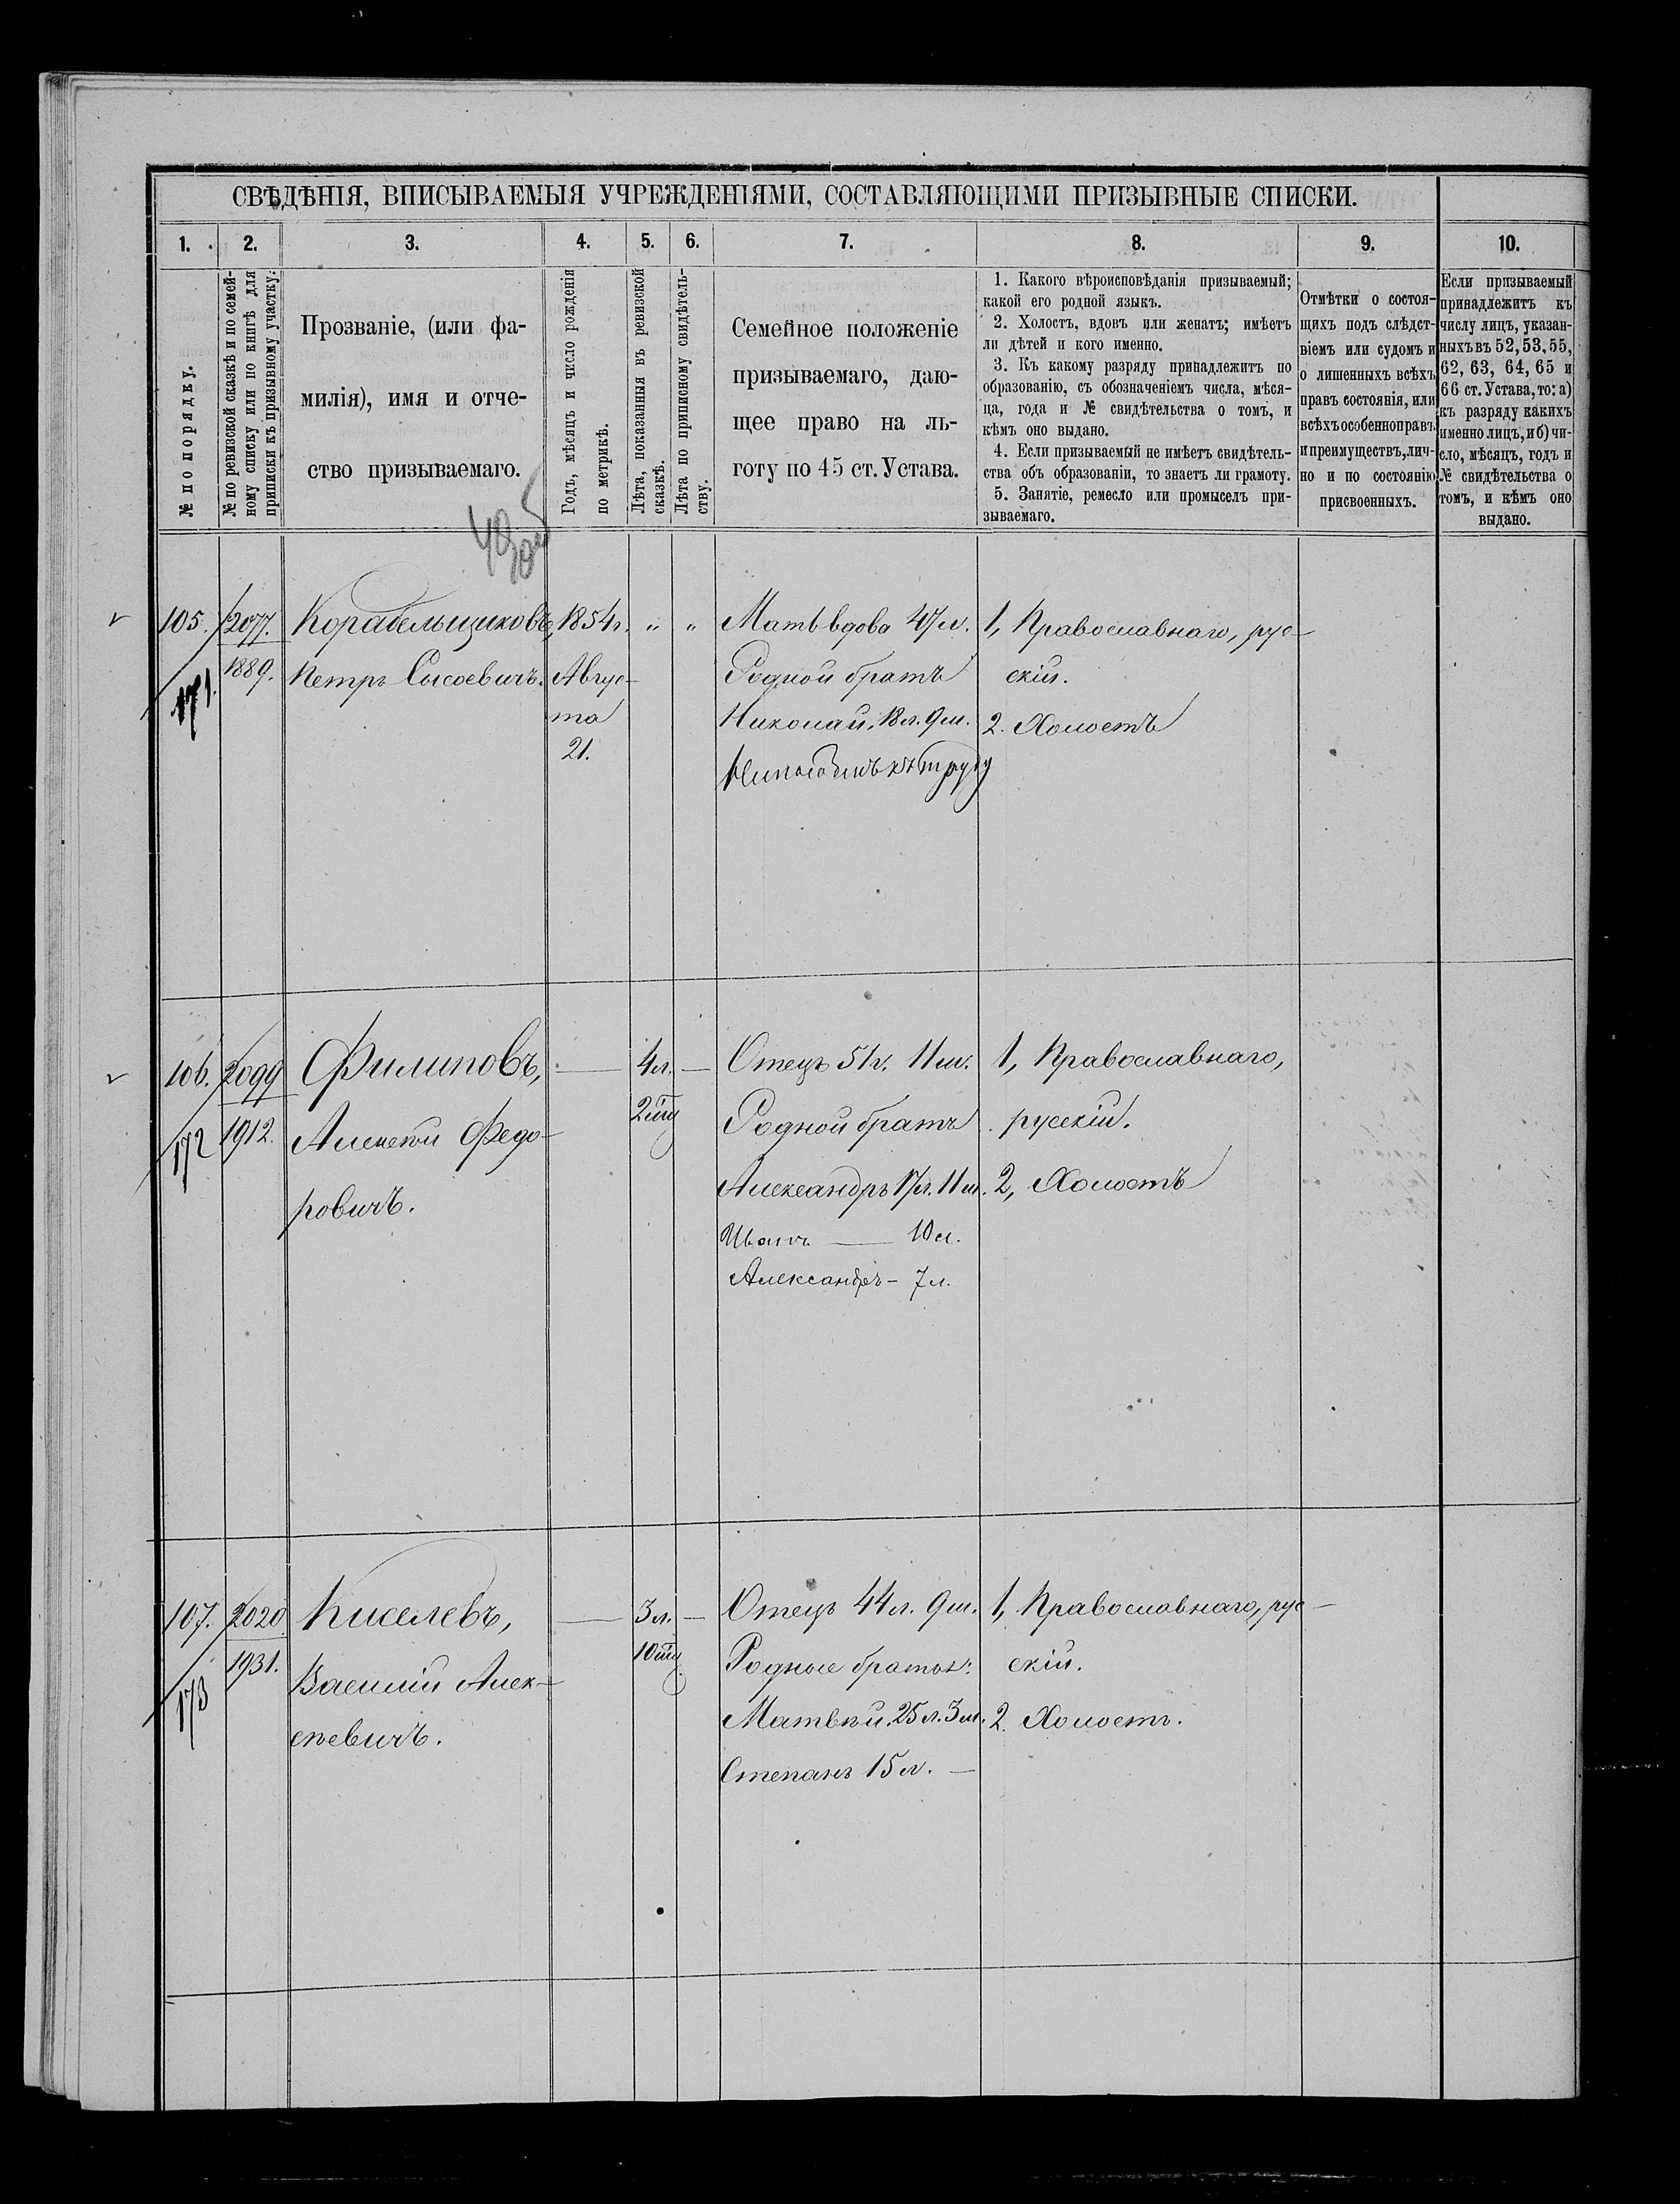 СВѢДѢНІЯ, ВПИСЫВАЕМЫЯ УЧРЕЖДЕНІЯМИ, СОСТАВЛЯЮЩИМИ ПРИЗЫВНЫЕ СПИСКИ.
1.
2.
3.
4.
5.
6.
7.
8.
9.
10.
№ по порядку.
№ по ревизской сказкѣ и по семей-
ному списку или по книгѣ для
приписки къ призывному участку.
Прозваніе, (или фа-
милія), имя и отче-
ство призываемаго.
Годъ, мѣсяцъ и число рожденія
по метрикѣ.
Лѣта, показанныя въ ревизской
сказкѣ.
Лѣта по приписному свидѣтель-
ству.
Семейное положеніе
призываемаго, даю-
щее право на ль-
готу по 45 ст. Устава.
1. Какого вѣроисповѣданія призываемый;
какой его родной языкъ.
2. Холостъ, вдовъ или женатъ; имѣетъ
ли дѣтей и кого именно.
3. Къ какому разряду принадлежитъ по
образованію, съ обозначеніемъ числа, мѣся-
ца, года и № свидѣтельства о томъ, и
кѣмъ оно выдано.
4. Если призываемый не имѣетъ свидѣтель-
ства объ образованіи, то знаетъ ли грамоту.
5. Занятіе, ремесло или промыселъ при-
зываемаго.
Отмѣтки о состоя-
щихъ подъ слѣдст-
віемъ или судомъ и
о лишенныхъ всѣхъ
правъ состоянія, или
всѣхъ особенно правъ
и преимуществъ, лич-
но и по состоянію
присвоенныхъ.
Если призываемый
принадлежитъ къ
числу лицъ, указан-
ныхъ въ 52, 53, 55,
62, 63, 64, 65 и
66 ст. Устава, то: а)
къ разряду какихъ
именно лицъ, и б) чи-
сло, мѣсяцъ, годъ и
№ свидѣтельства о
томъ, и кѣмъ оно
выдано.
105. 2077. Корабельщиковъ, 1854г. " " Мать вдова 47л. 1, Православнаго, рус-
171. 1889. Петръ Сысоевичъ. Авгус- Родной братъ скій.
та Николай. 18л. 9м. 2. Холостъ
21.
къ труду
106. 2099 Филиповъ, — 4л. — Отецъ 51г. 11м. 1, Православнаго,
172 1912. Алексѣй Федо- 2мц Родной братъ русскій.
ровичъ. Александръ 17л. 11м. 2, Холостъ
Иванъ — 10л.
Александръ - 7л.
107. 2020 Киселевъ, — 3л. — Отецъ 44л. 9м. 1, Православнаго, рус-
173 1931. Василій Алек- 10мц Родные братья: скій.
сѣевичъ. Матвѣй. 25л. 3м. 2. Холостъ.
Степанъ 15л. —